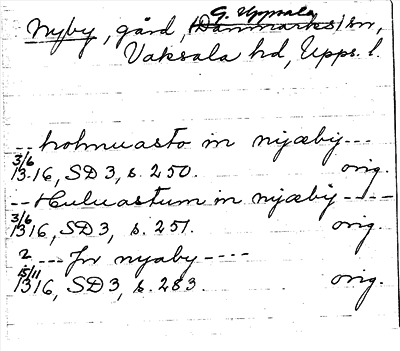 G. Uppsala
Nyby, gård, (Danmarks) sn,
Vaksala hd, Upps. l.
--- holmuasto in nyæby ---
3/6
1316, SD 3, s. 250. orig.
--- Huluastum in nyæby ----
3/6
1316, SD 3, s. 251. orig.
2 --- Jn nyaby ----
15/11
1316, SD 3, s. 283. orig.